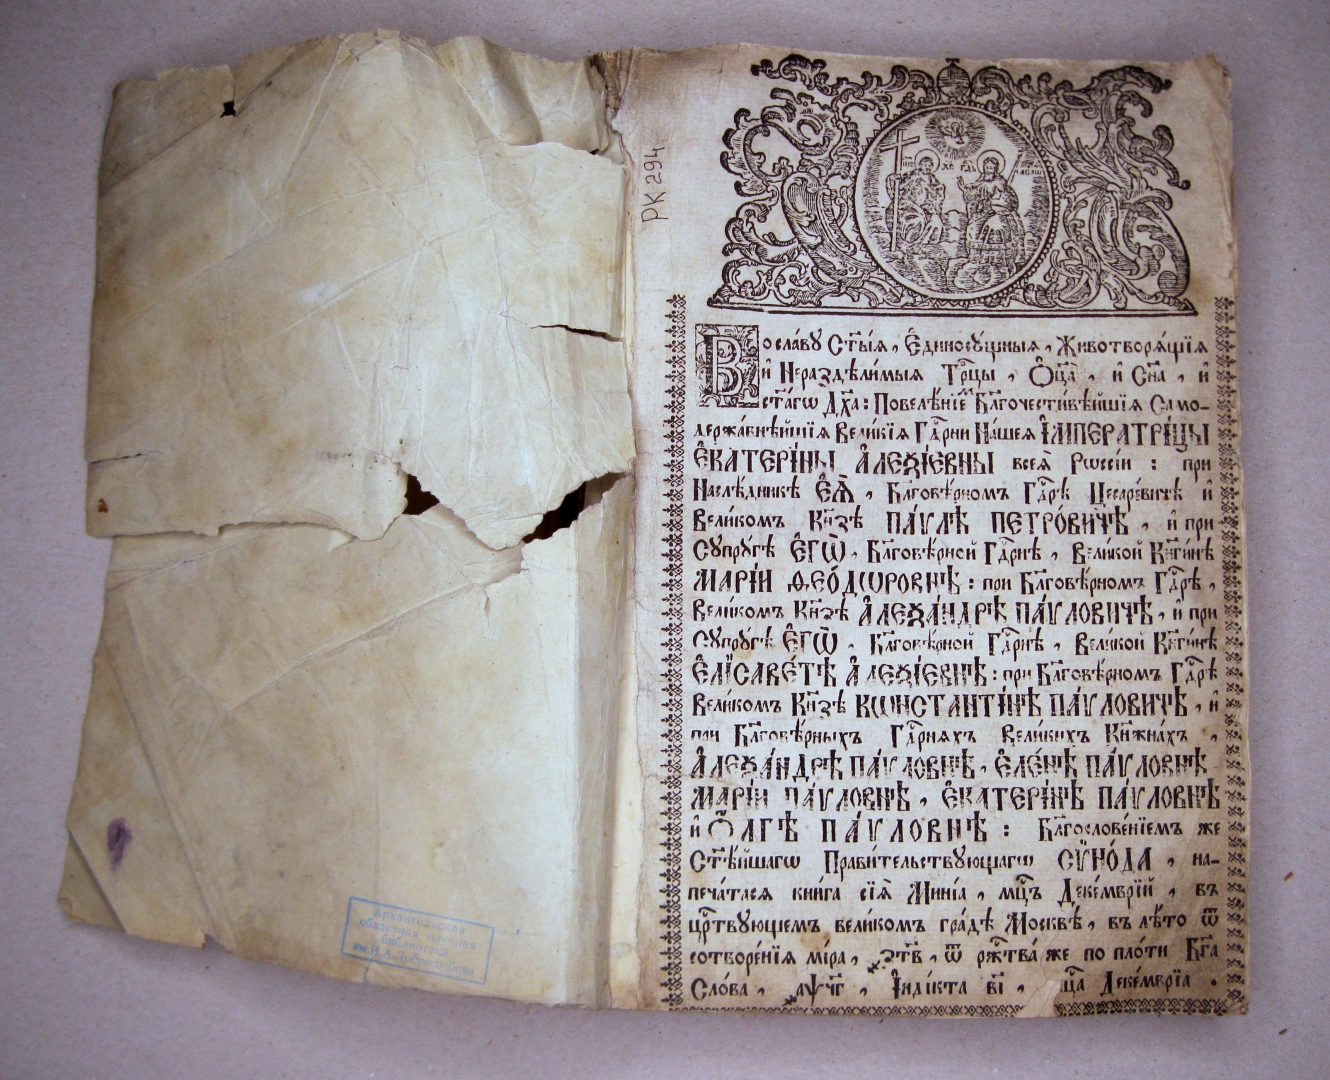 РК 294
Во сла́вꙋ Ст҃ы́ѧ, Є҆диносꙋ́щныѧ, Животворѧ́щїѧ
и҆ Нераздѣли́мыѧ Трⷪ҇цы, Ѻ҆ц҃а̀, и҆ Сн҃а, и҆
ст҃а́гѡ Дх҃а: Повелѣ́нїемъ Бл҃гочести́вѣйшїѧ Само-
держа́внѣйшїѧ Вели́кїѧ Гдⷭ҇рни На́шеѧ І҆МПЕРАТРИ́ЦЫ
Є҆КАТЕРІ́НЫ А҆ЛЕѮІ́ЕВНЫ всеѧ̀ Рѡссі́и: при
Наслѣ́дникѣ Є҆Ѧ̀, Бл҃говѣ́рномъ Гдⷭ҇рѣ Цесаре́вичѣ и҆
Вели́комъ Кн҃зѣ ПА́ѴЛѢ ПЕТРО́ВИЧѢ, и҆ при
Сꙋпрꙋ́гѣ Є҆ГѠ̀, Бл҃говѣ́рной Гдⷭ҇рнѣ, Вели́кой Кн҃ги́нѣ
МАРІ́И ѲЕО́ДѠРОВНѢ: при Бл҃говѣ́рномъ Гдⷭ҇рѣ,
Вели́комъ Кн҃зѣ А҆ЛЕѮА́НДРѢ ПА́ѴЛОВИЧѢ, и҆ при
Сꙋпрꙋ́гѣ Є҆ГѠ̀, Бл҃говѣ́рной Гдⷭ҇рнѣ, Вели́кой Кн҃ги́нѣ
Є҆ЛІСАВЕ́ТѢ А҆ЛЕѮІ́ЕВНѢ: при Бл҃говѣ́рномъ Гдⷭ҇рѣ
Вели́комъ Кн҃зѣ КѠНСТАНТІ́НѢ ПА́ѴЛОВИЧѢ, и҆
при Бл҃говѣ́рныхъ Гдⷭ҇рнѧхъ Вели́кихъ Кнѧжна́хъ,
А҆ЛЕѮА́НДРѢ ПА́ѴЛОВНѢ, Є҆ЛЕ́НѢ ПА́ѴЛОВНѢ
МАРІ́И ПА́ѴЛОВНѢ, Є҆КАТЕРІ́НѢ ПА́ѴЛОВНѢ
и҆ Ѻ҆́ЛГѢ ПА́ѴЛОВНѢ: Бл҃гослове́нїемъ же
Ст҃ѣ́йшагѡ Прави́тельствꙋющагѡ СѴНО́ДА, на-
печа́тасѧ кни́га сїѧ̀ Мині́а, мцⷭ҇ъ Деке́мврїй, въ
црⷭ҇твꙋющемъ вели́комъ гра́дѣ Москвѣ̀, въ лѣ́то ѿ
сотворе́нїѧ мі́ра, ҂зтв, ѿ ржⷭ҇тва́ же по пло́ти Бг҃а
Сло́ва, ҂аѱчг, І҆нді́кта ві, мцⷭ҇а Деке́мврїа.
Архангельская
областная научная
библиотека
им. Н.А. Добролюбова